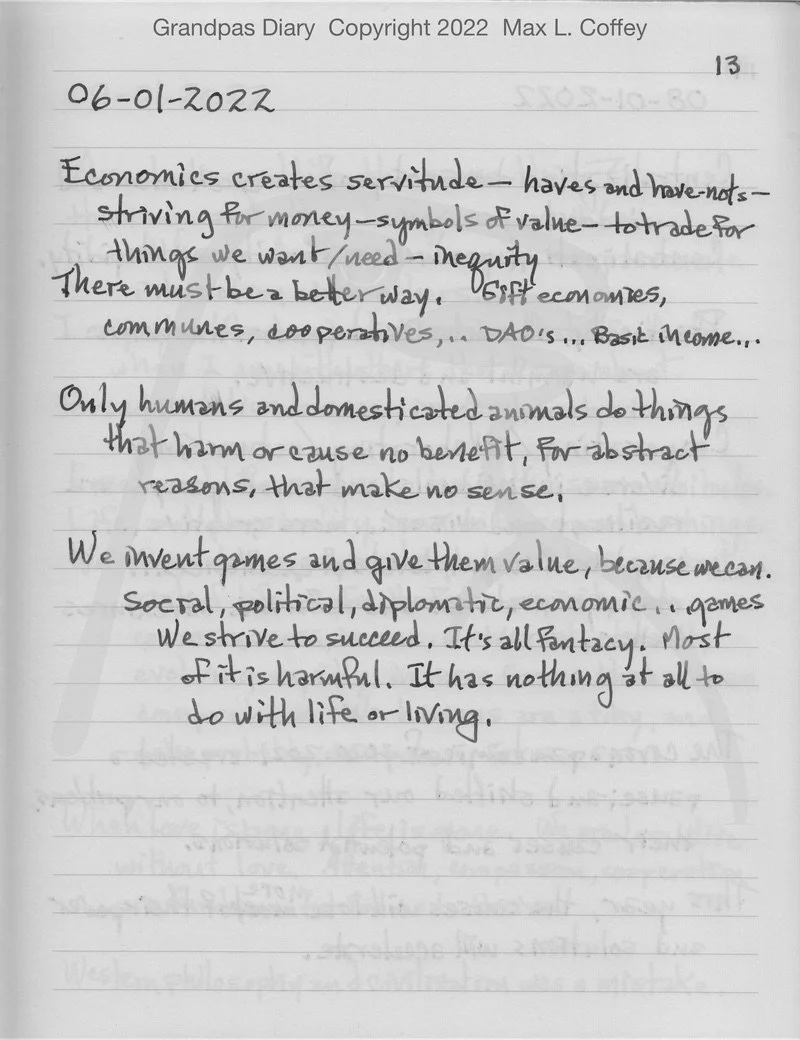 Grandpas Diary Copyright 2022 Max L. Coffey
13
06-01-2022
Economics creates servitude — haves and have-nots —
striving for money — symbols of value — to trade for
things we want/need — inequity
There must be a better way. Gift economies,
communes, cooperatives,.. DAO's... Basic income...
Only humans and domesticated animals do things
that harm or cause no benefit, for abstract
reasons, that make no sense.
We invent games and give them value, because we can.
Social, political, diplomatic, economic... games
We strive to succeed. It's all fantacy. Most
of it is harmful. It has nothing at all to
do with life or living.